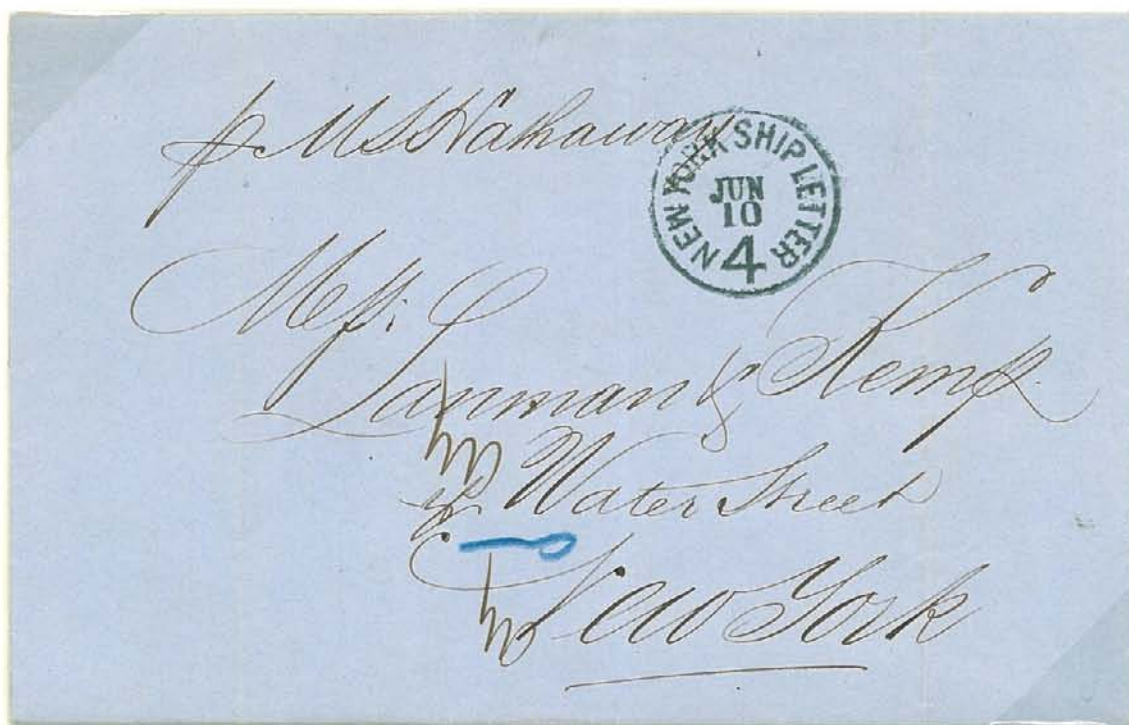 p M S Hathaway
NEW YORK SHIP LETTER
JUN
10
4
Mess.
Lanman & Kemp.
Water Street
New York